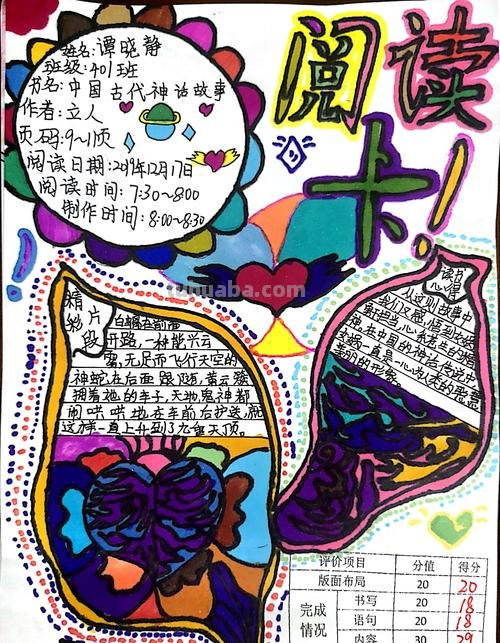 阅读
卡!
姓名:谭晓静
班级:401班
书名:中国古代神话故事
作者:立人
页码:9~11页
阅读日期:2019年12月17日
阅读时间:7:30~8:00
制作时间:8:00~8:30
精彩片段
白螭在前面
开路,一种能兴云
雾,无足而飞行天空的
神蛇在后面跟随,黄云簇
拥着她的车子,天地鬼神都
闹哄哄地在车前后护送,就
这样一直上升到了九重天顶。
读书
心得
从这则故事中
我们又感悟到女娲
神在中国的神话传说中
女娲一直是一心为人类的
美丽的形象。
tuhuaba.com
评价项目 分值 得分
版面布局 20 20
完成情况 书写 20 18
语句 20 18
内容 30 29